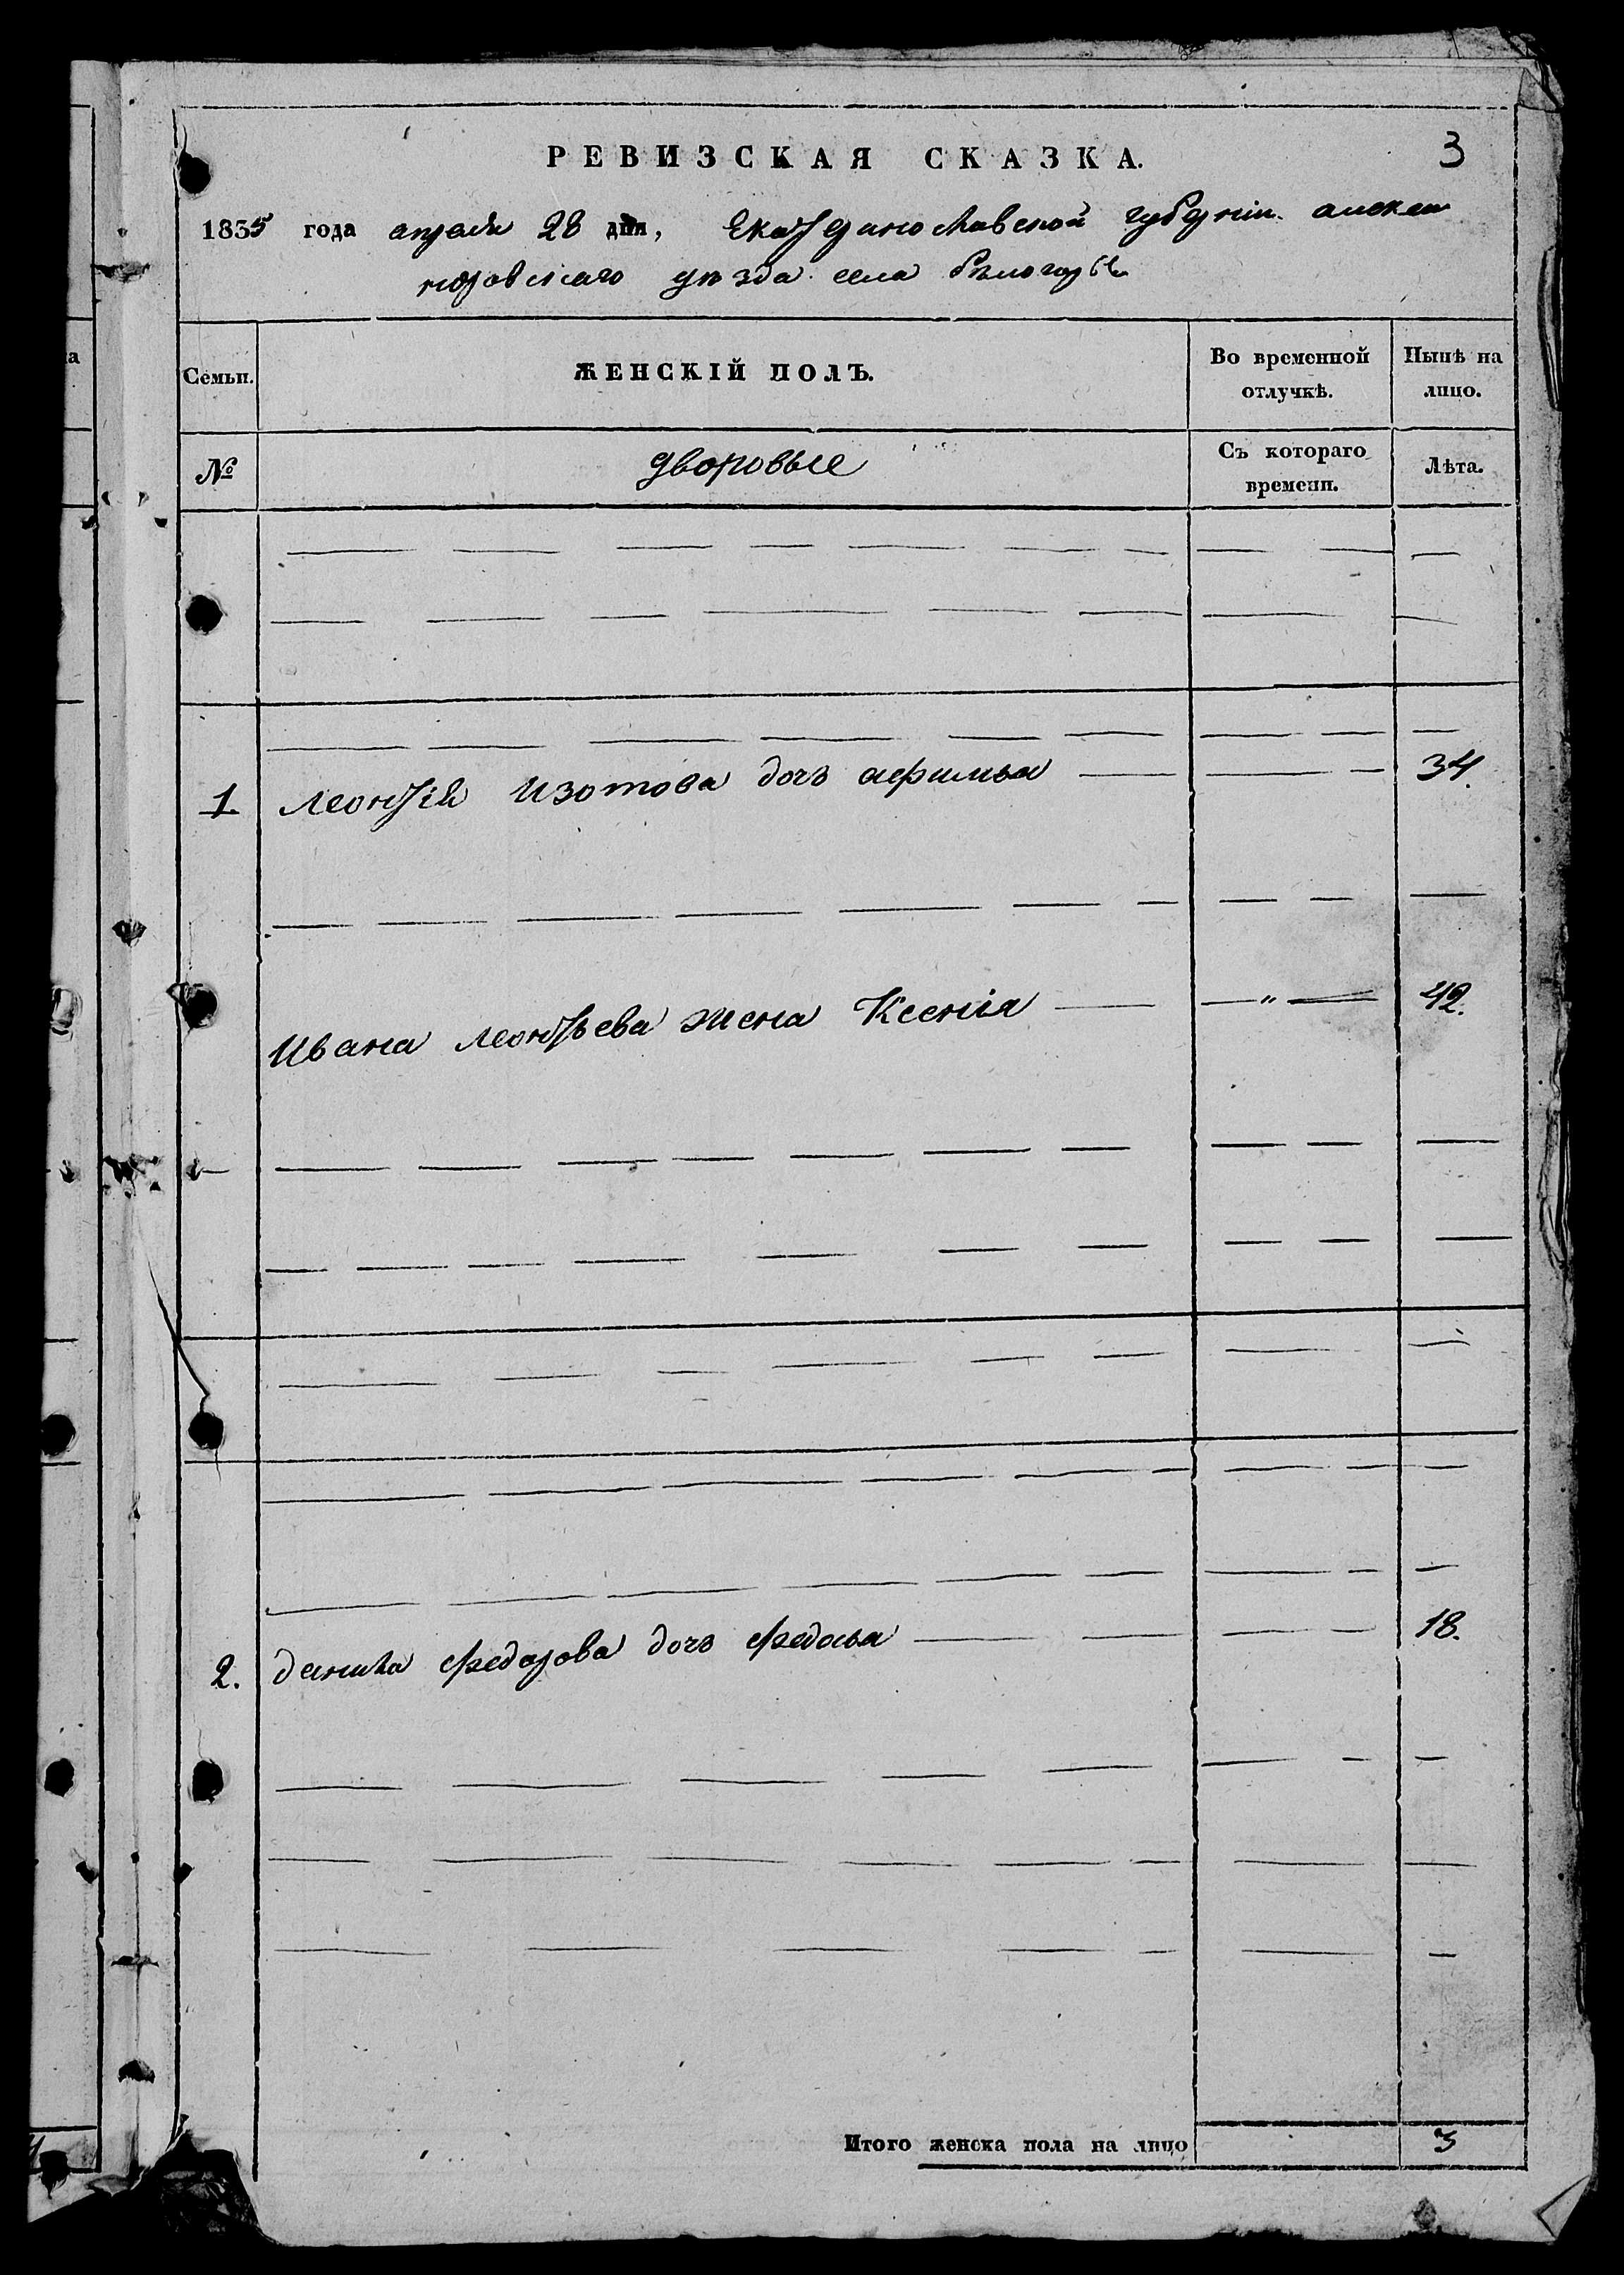 РЕВИЗСКАЯ СКАЗКА.
3
1835 года апреля 28 дня, Екатеринославской губерніи алексан
дровскаго уѣзда села бѣлогорья
Семьи.
ЖЕНСКІЙ ПОЛЪ.
Во временной отлучкѣ.
Нынѣ на лицо.
№
дворовые
Съ котораго времени.
Лѣта.
1 леонтія изотова дочь афимья 34.
Ивана леонтьева жена Ксенія — " — 42.
2. данила федорова дочь федосья 18.
Итого женска пола на лицо 3